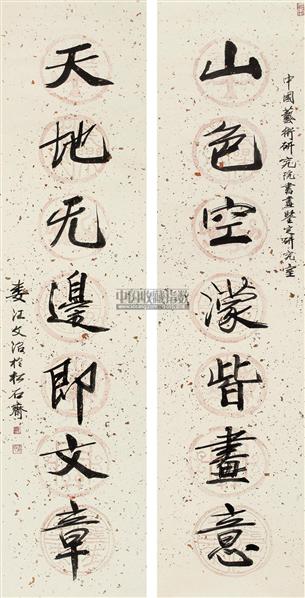 中國藝術研究院書畫鑒定研究室
山色空濛皆畫意
天地无邊即文章
娄江文治於松石齋